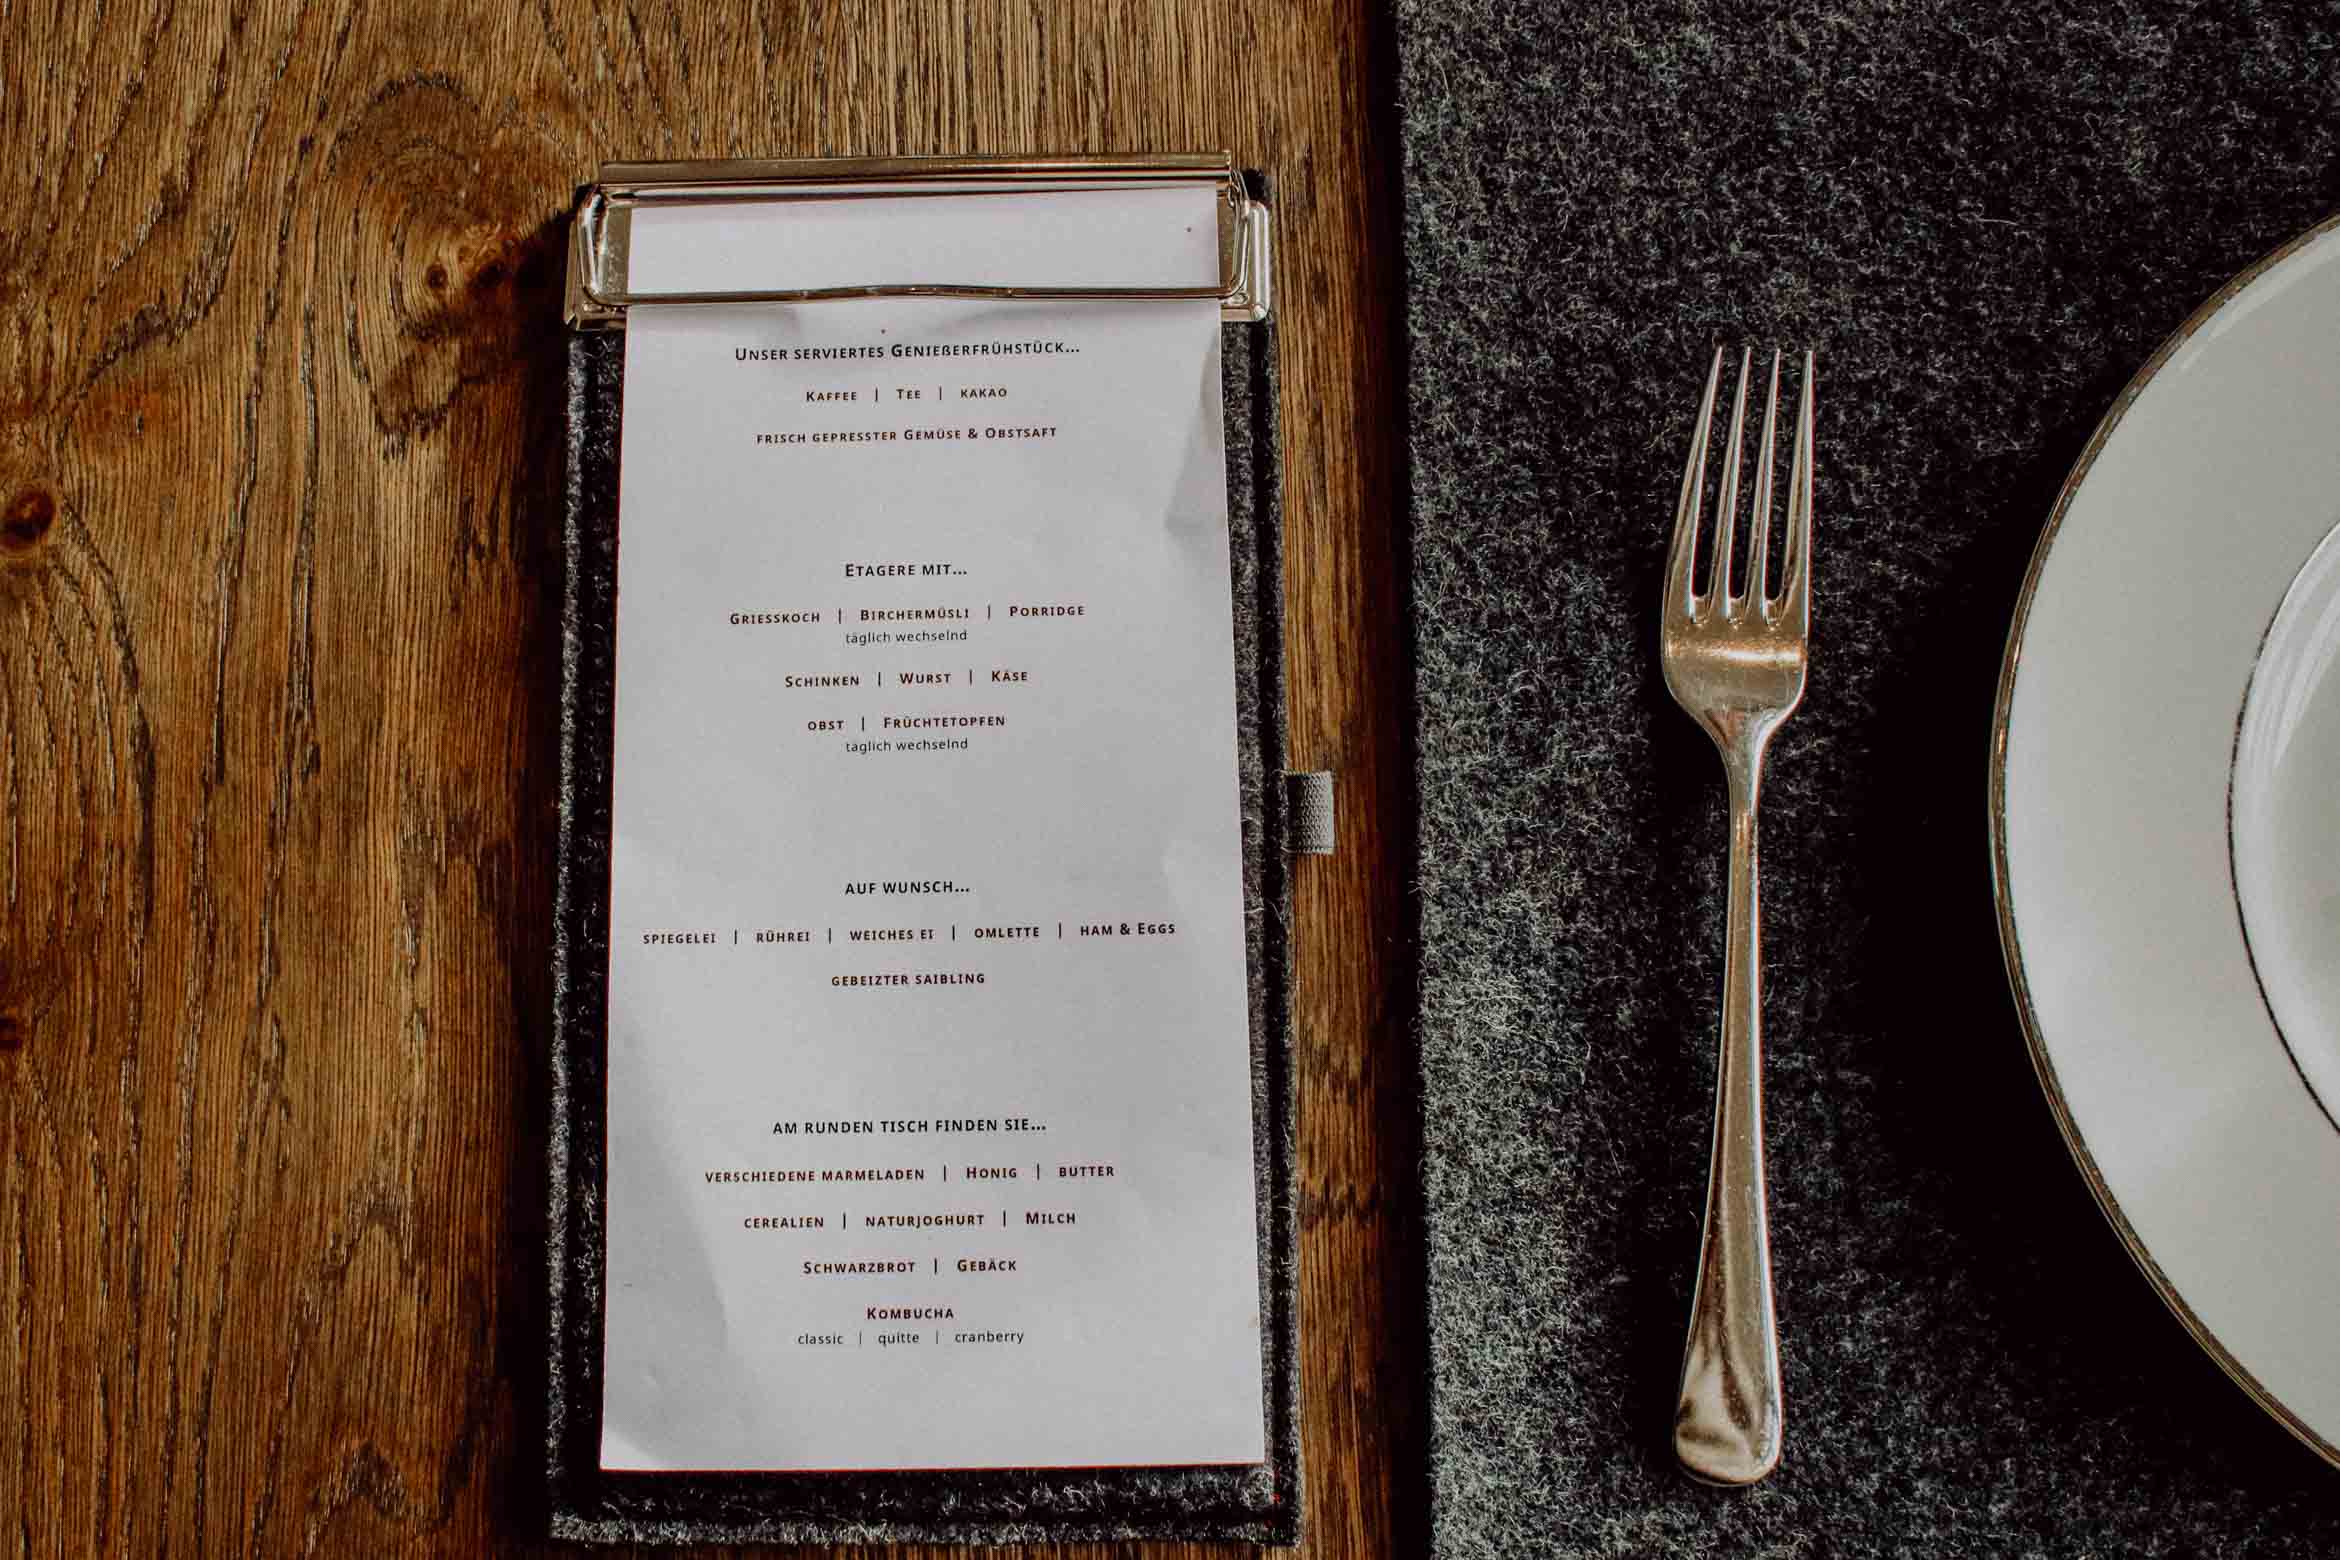 Unser serviertes Genießerfrühstück...
Kaffee | Tee | kakao
frisch gepresster Gemüse & Obstsaft
Etagere mit...
Griesskoch | Birchermüsli | Porridge
täglich wechselnd
Schinken | Wurst | Käse
obst | Früchtetopfen
täglich wechselnd
auf wunsch...
spiegelei | rührei | weiches ei | omlette | ham & Eggs
gebeizter saibling
am runden tisch finden sie...
verschiedene marmeladen | Honig | butter
cerealien | naturjoghurt | Milch
Schwarzbrot | Gebäck
Kombucha
classic | quitte | cranberry